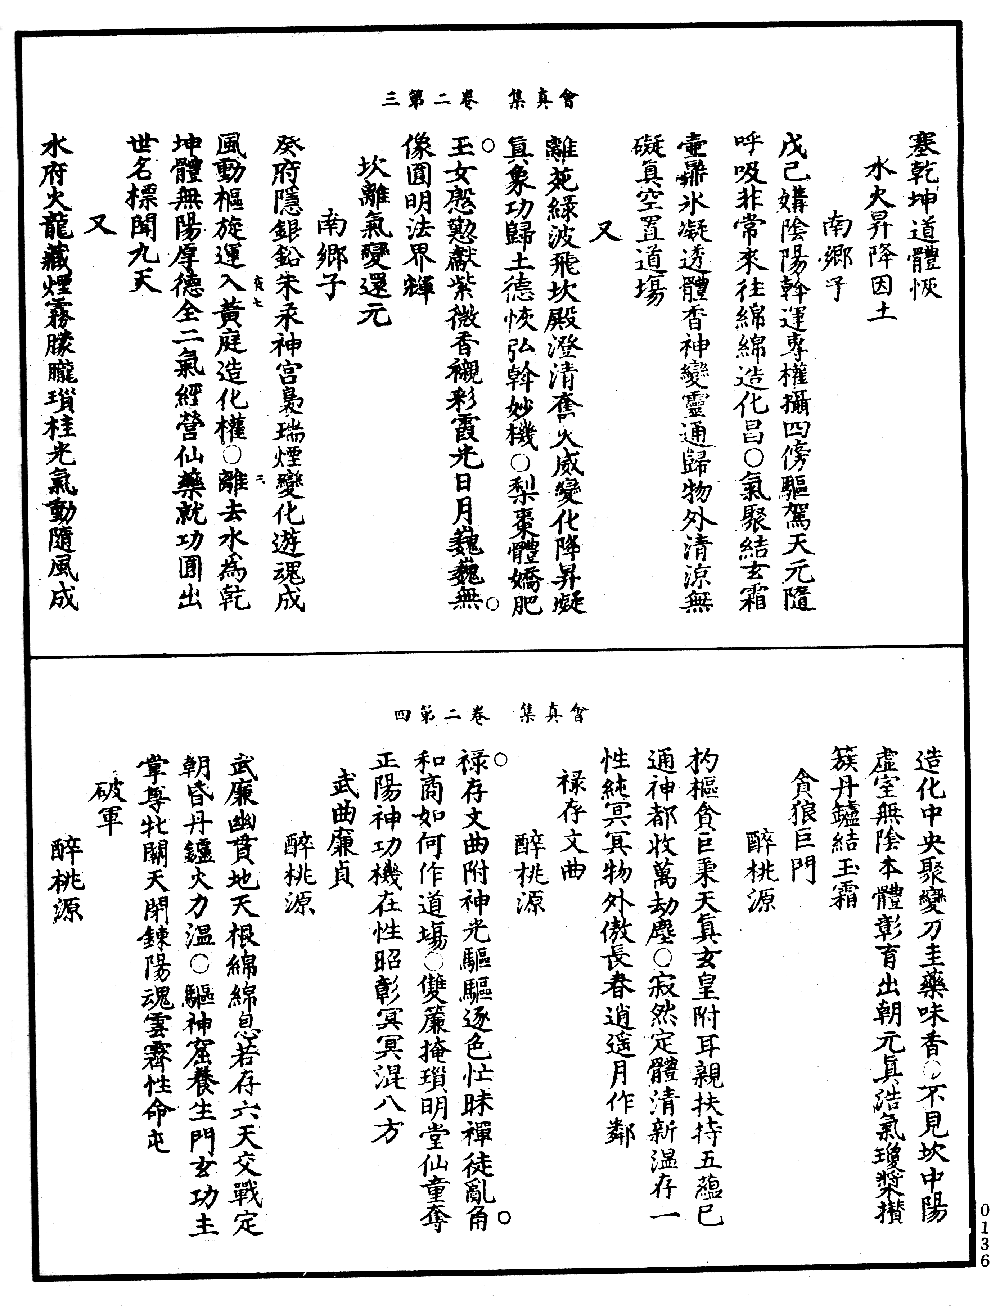 三第二巻　集真會
塞乾坤道體恢
水火昇降因土
南鄉子
戊己媾陰陽斡運專權攝四傍驅駕天元隨
呼吸非常來往綿綿造化昌○氣聚結玄霜
壷鼎氷凝透體香神變靈通歸物外清涼無
礙真空置道場
又
離苑綠波飛坎殿澄清奮火威變化降昇凝
真象功歸土德恢弘斡妙機○梨棗體嬌肥
玉女慇懃獻紫微香襯彩霞光日月巍巍無
像圓明法界輝
坎離氣變還元
南鄉子
癸府隱銀鉛朱汞神宮裊瑞煙變化遊魂成
風動樞旋運入黃庭造化權○離去水為乾
坤體無陽厚德全二氣經營仙藥就功圓出
世名標閬九天
又
水府火龍藏煙霧朦朧瑣桂光氣動隨風成
四第二巻　集真會
造化中央聚變刀圭藥味香○不見坎中陽
虛室無陰本體彰育出朝元真浩氣瓊漿攢
簇丹鑪結玉霜
貪狼巨門
醉桃源
杓樞貪巨秉天真玄皇附耳親扶持五蘊已
通神都收萬劫塵○寂然定體清新溫存一
性純冥冥物外傲長春逍遥月作鄰
禄存文曲
醉桃源
禄存文曲附神光驅驅逐色忙昧禪徒亂角
和商如何作道塲○雙簾掩瑣明堂仙童奪
正陽神功機在性昭彰冥冥混八方
武曲廉貞
醉桃源
武廉幽賁地天根綿綿息若存六天交戰定
朝昏丹鑪火力溫○驅神窟養生門玄功主
掌尊牝關天閉鍊陽魂雲霽性命屯
破軍
醉桃源
0136